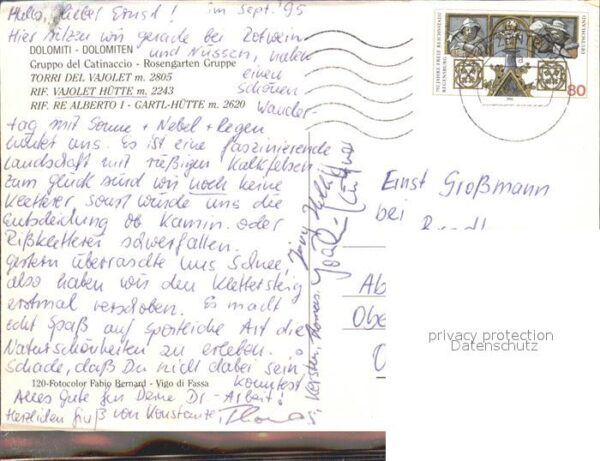 Hallo, lieber Ernst! im Sept. '95
Hier sitzen wir gerade bei Rotwein
DOLOMITI - DOLOMITEN und Nüssen, haben
Gruppo del Catinaccio - Rosengarten Gruppe
TORRI DEL VAJOLET m. 2805 einen
RIF. VAJOLET HÜTTE m. 2243 schönen
RIF. RE ALBERTO I - GARTL-HÜTTE m. 2620 Wander-
tag mit Sonne + Nebel + Regen
hinter uns. Es ist eine faszinierende
Landschaft mit rußigen Kalkfelsen.
Zum Glück sind wir noch keine
Kletterer, sonst würde uns die
Entscheidung ob Kamin- oder
Rißkletterei schwerfallen.
Gestern überraschte uns Schnee,
also haben wir den Klettersteig
erstmal verschoben. Es macht
echt Spaß auf sportliche Art die
Naturschönheiten zu erleben.
Schade, daß Du nicht dabei sein
konntest
120-Fotocolor Fabio Bernard - Vigo di Fassa
Alles Gute für Deine Di-Arbeit!
Herzlichen Gruß von Konstanze,
Thomas
Kersten, Thomas
750 JAHRE FREIE REICHSSTADT
REGENSBURG
DEUTSCHLAND
80
Ernst Großmann
bei
Ab
Obe
privacy protection
Datenschutz